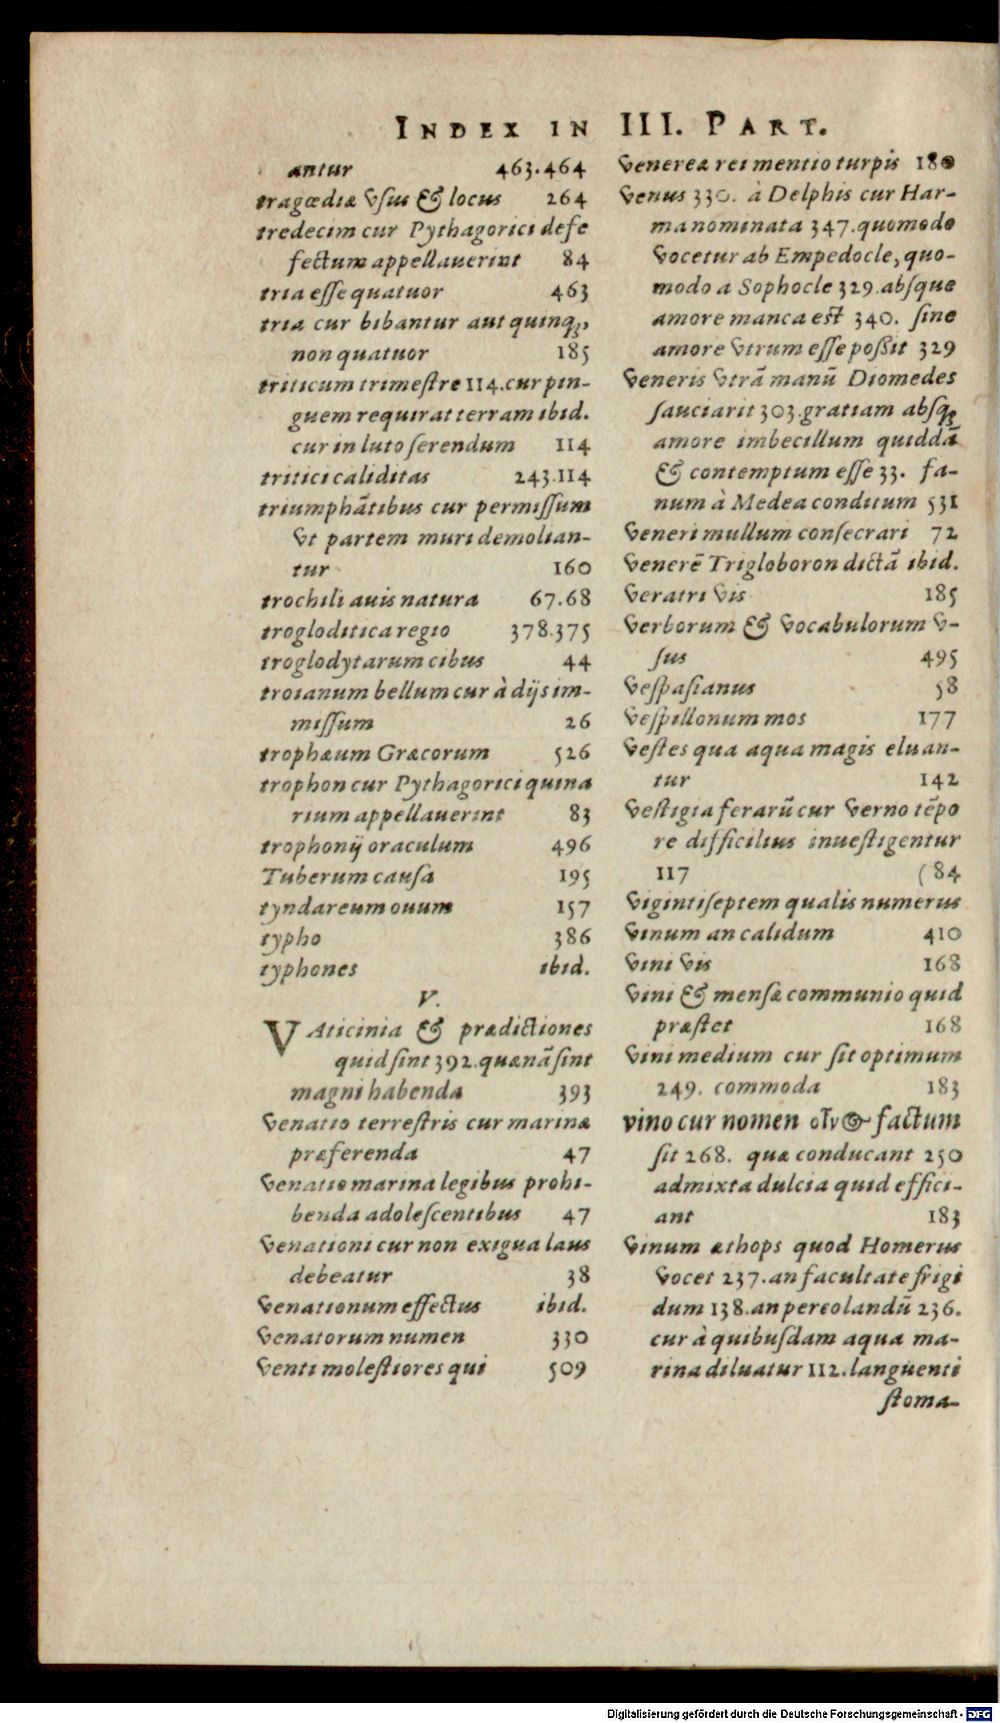 INDEX IN III. PART.
antur 463.464
tragœdiæ vsus & locus 264
tredecim cur Pythagorici defe
fectum appellauerint 84
tria esse quatuor 463
tria cur bibantur aut quinq;,
non quatuor 185
triticum trimestre 114.cur pin-
guem requirat terram ibid.
cur in luto serendum 114
tritici caliditas 243.114
triumphātibus cur permissum
vt partem muri demolian-
tur 160
trochili auis natura 67.68
trogloditica regio 378.375
troglodytarum cibus 44
troianum bellum cur à dijs im-
missum 26
trophæum Græcorum 526
trophon cur Pythagorici quina
rium appellauerint 83
trophonij oraculum 496
Tuberum causa 195
tyndareum ouum 157
typho 386
typhones ibid.
V.
VAticinia & prædictiones
quid sint 392.quænā sint
magni habenda 393
Venatio terrestris cur marinæ
præferenda 47
Venatio marina legibus prohi-
benda adolescentibus 47
Venationi cur non exigua laus
debeatur 38
Venationum effectus ibid.
Venatorum numen 330
Venti molestiores qui 509
Venereæ rei mentio turpis 180
Venus 330. à Delphis cur Har-
ma nominata 347.quomodo
vocetur ab Empedocle, quo-
modo a Sophocle 329.absque
amore manca est 340. sine
amore vtrum esse poßit 329
Veneris vtrā manū Diomedes
sauciarit 303.gratiam absq;
amore imbecillum quiddā
& contemptum esse 33. fa-
num à Medea conditum 531
Veneri mullum consecrari 72
Venerē Trigloboron dictā ibid.
Veratri vis 185
Verborum & vocabulorum v-
sus 495
Vespasianus 58
Vespillonum mos 177
Vestes qua aqua magis eluan-
tur 142
Vestigia ferarū cur verno tēpo
re difficilius inuestigentur
117 (84
Vigintiseptem qualis numerus
Vinum an calidum 410
Vini vis 168
Vini & mensæ communio quid
præstet 168
Vini medium cur sit optimum
249. commoda 183
vino cur nomen οἶνος factum
sit 268. quæ conducant 250
admixta dulcia quid effici-
ant 183
Vinum æthops quod Homerus
vocet 237.an facultate frigi
dum 138.an percolandū 236.
cur à quibusdam aqua ma-
rina diluatur 112.languenti
stoma-
Digitalisierung gefördert durch die Deutsche Forschungsgemeinschaft - DFG